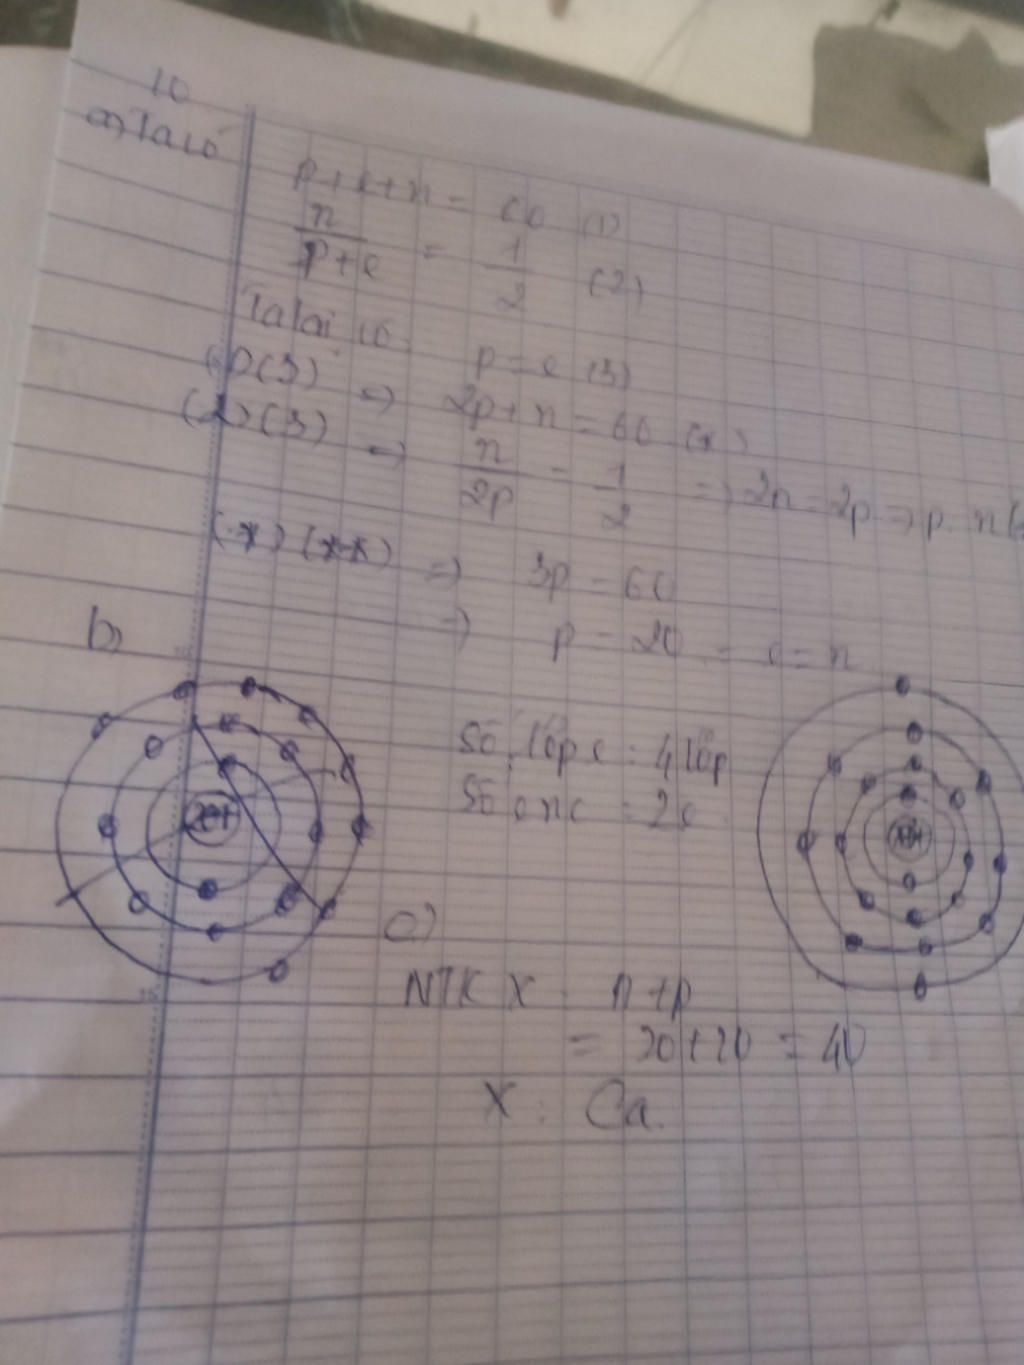 10
a) Ta có
p+e+n = 60 (1)
n/p+e = 1/2 (2)
Ta lại có p = e (3)
(1)(3) => 2p+n = 60 (*)
(2)(3) => n/2p = 1/2 => 2n = 2p => p = n
(*)(**) => 3p = 60
=> p = 20 = e = n
b)
20+
Số lớp e : 4 lớp
Số e = 20
c)
NTK X = n+p
= 20+20 = 40
X : Ca.